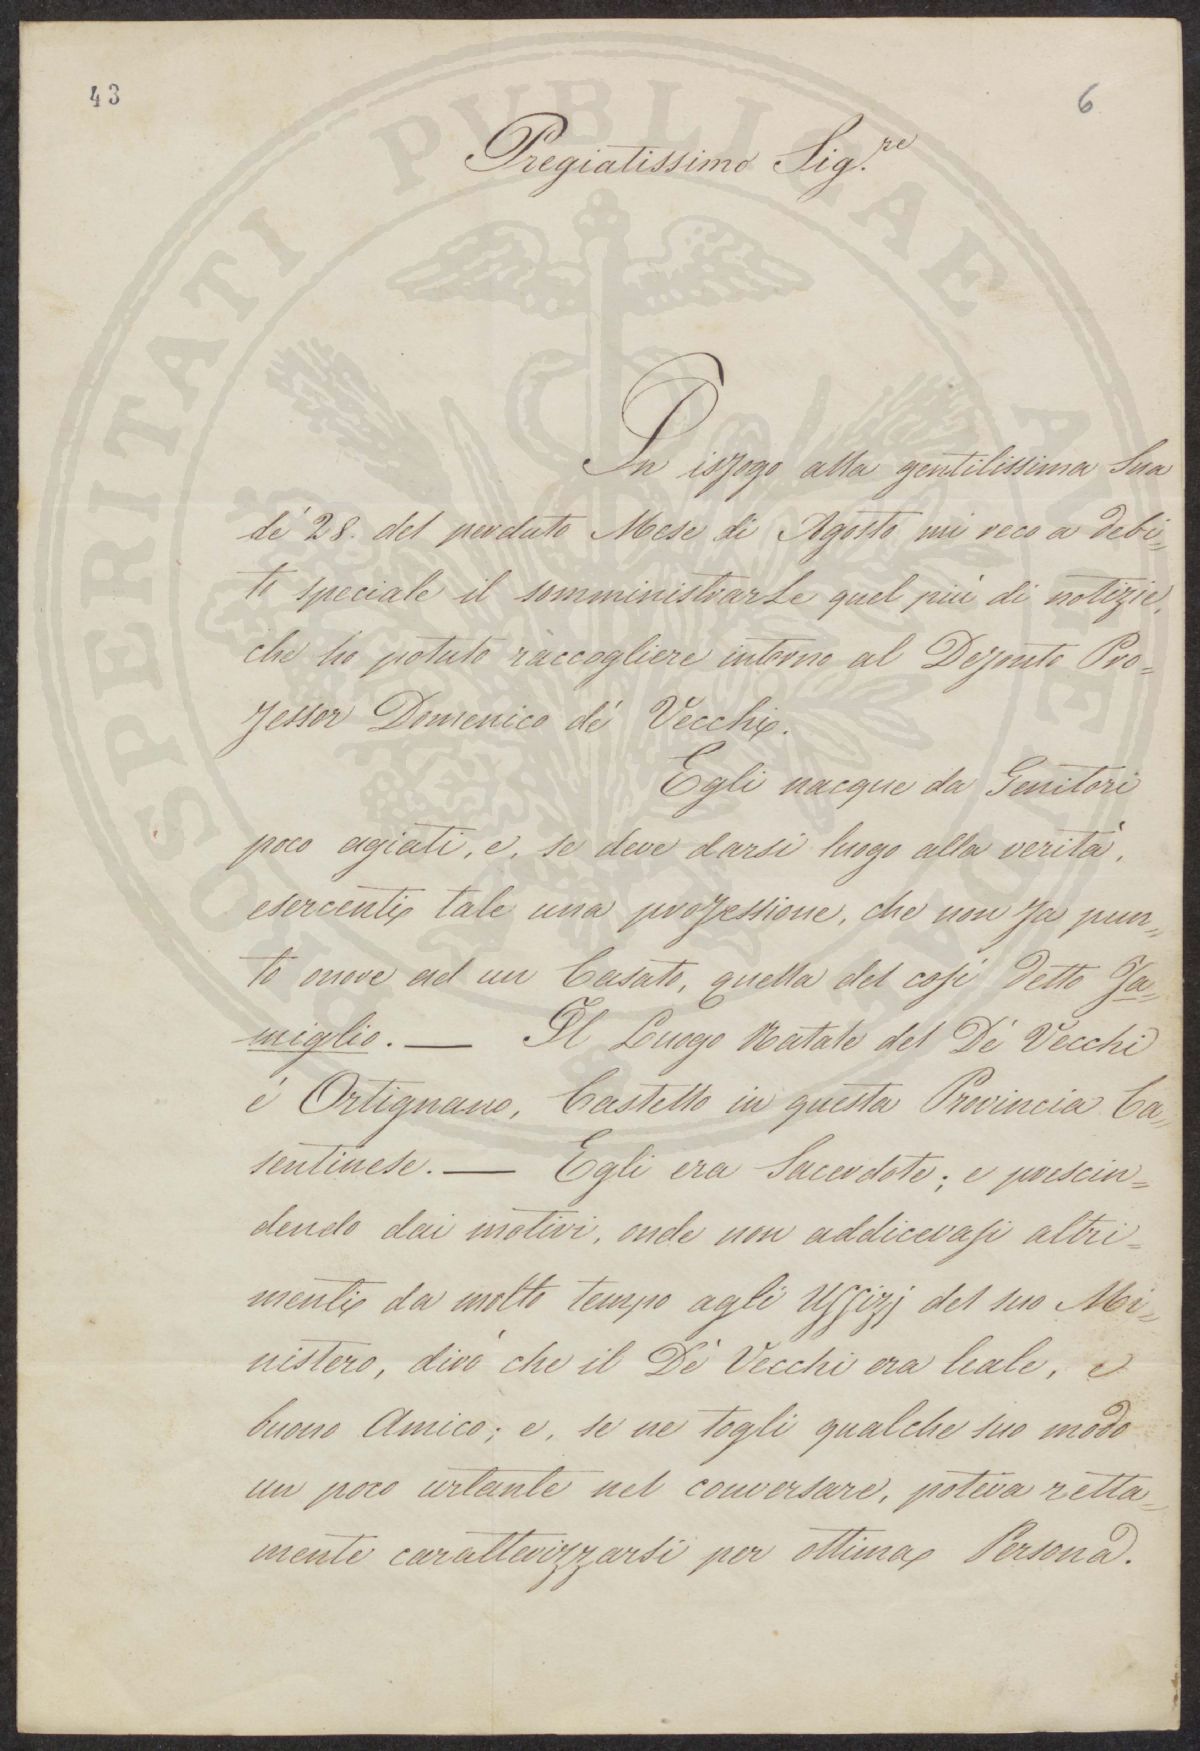 43
6
Pregiatissimo Sig.re
In isfogo alla gentilissima Sua
de' 28. del perduto Mese di Agosto mi reco a debi=
to speciale il somministrarLe quel più di notizie,
che ho potuto raccogliere intorno al Defonto Pro=
fessor Domenico de' Vecchi.
Egli nacque da Genitori
poco agiati, e, se deve darsi luogo alla verità,
esercenti tale una professione, che non fa pun=
to onore ad un Casato, quella del così detto Fa=
miglio. — Il Luogo Natale del De' Vecchi
è Ortignano, Castello in questa Provincia Ca=
sentinese. — Egli era Sacerdote; e prescin=
dendo dai motivi, onde non addicevasi altri=
menti da molto tempo agli Uffizj del suo Mi=
nistero, dirò che il De' Vecchi era leale, e
buono Amico; e, se ne togli qualche suo modo
un poco urtante nel conversare, poteva retta=
mente caratterizzarsi per ottima Persona.
PROSPERITATI PVBLICAE AVGENDAE